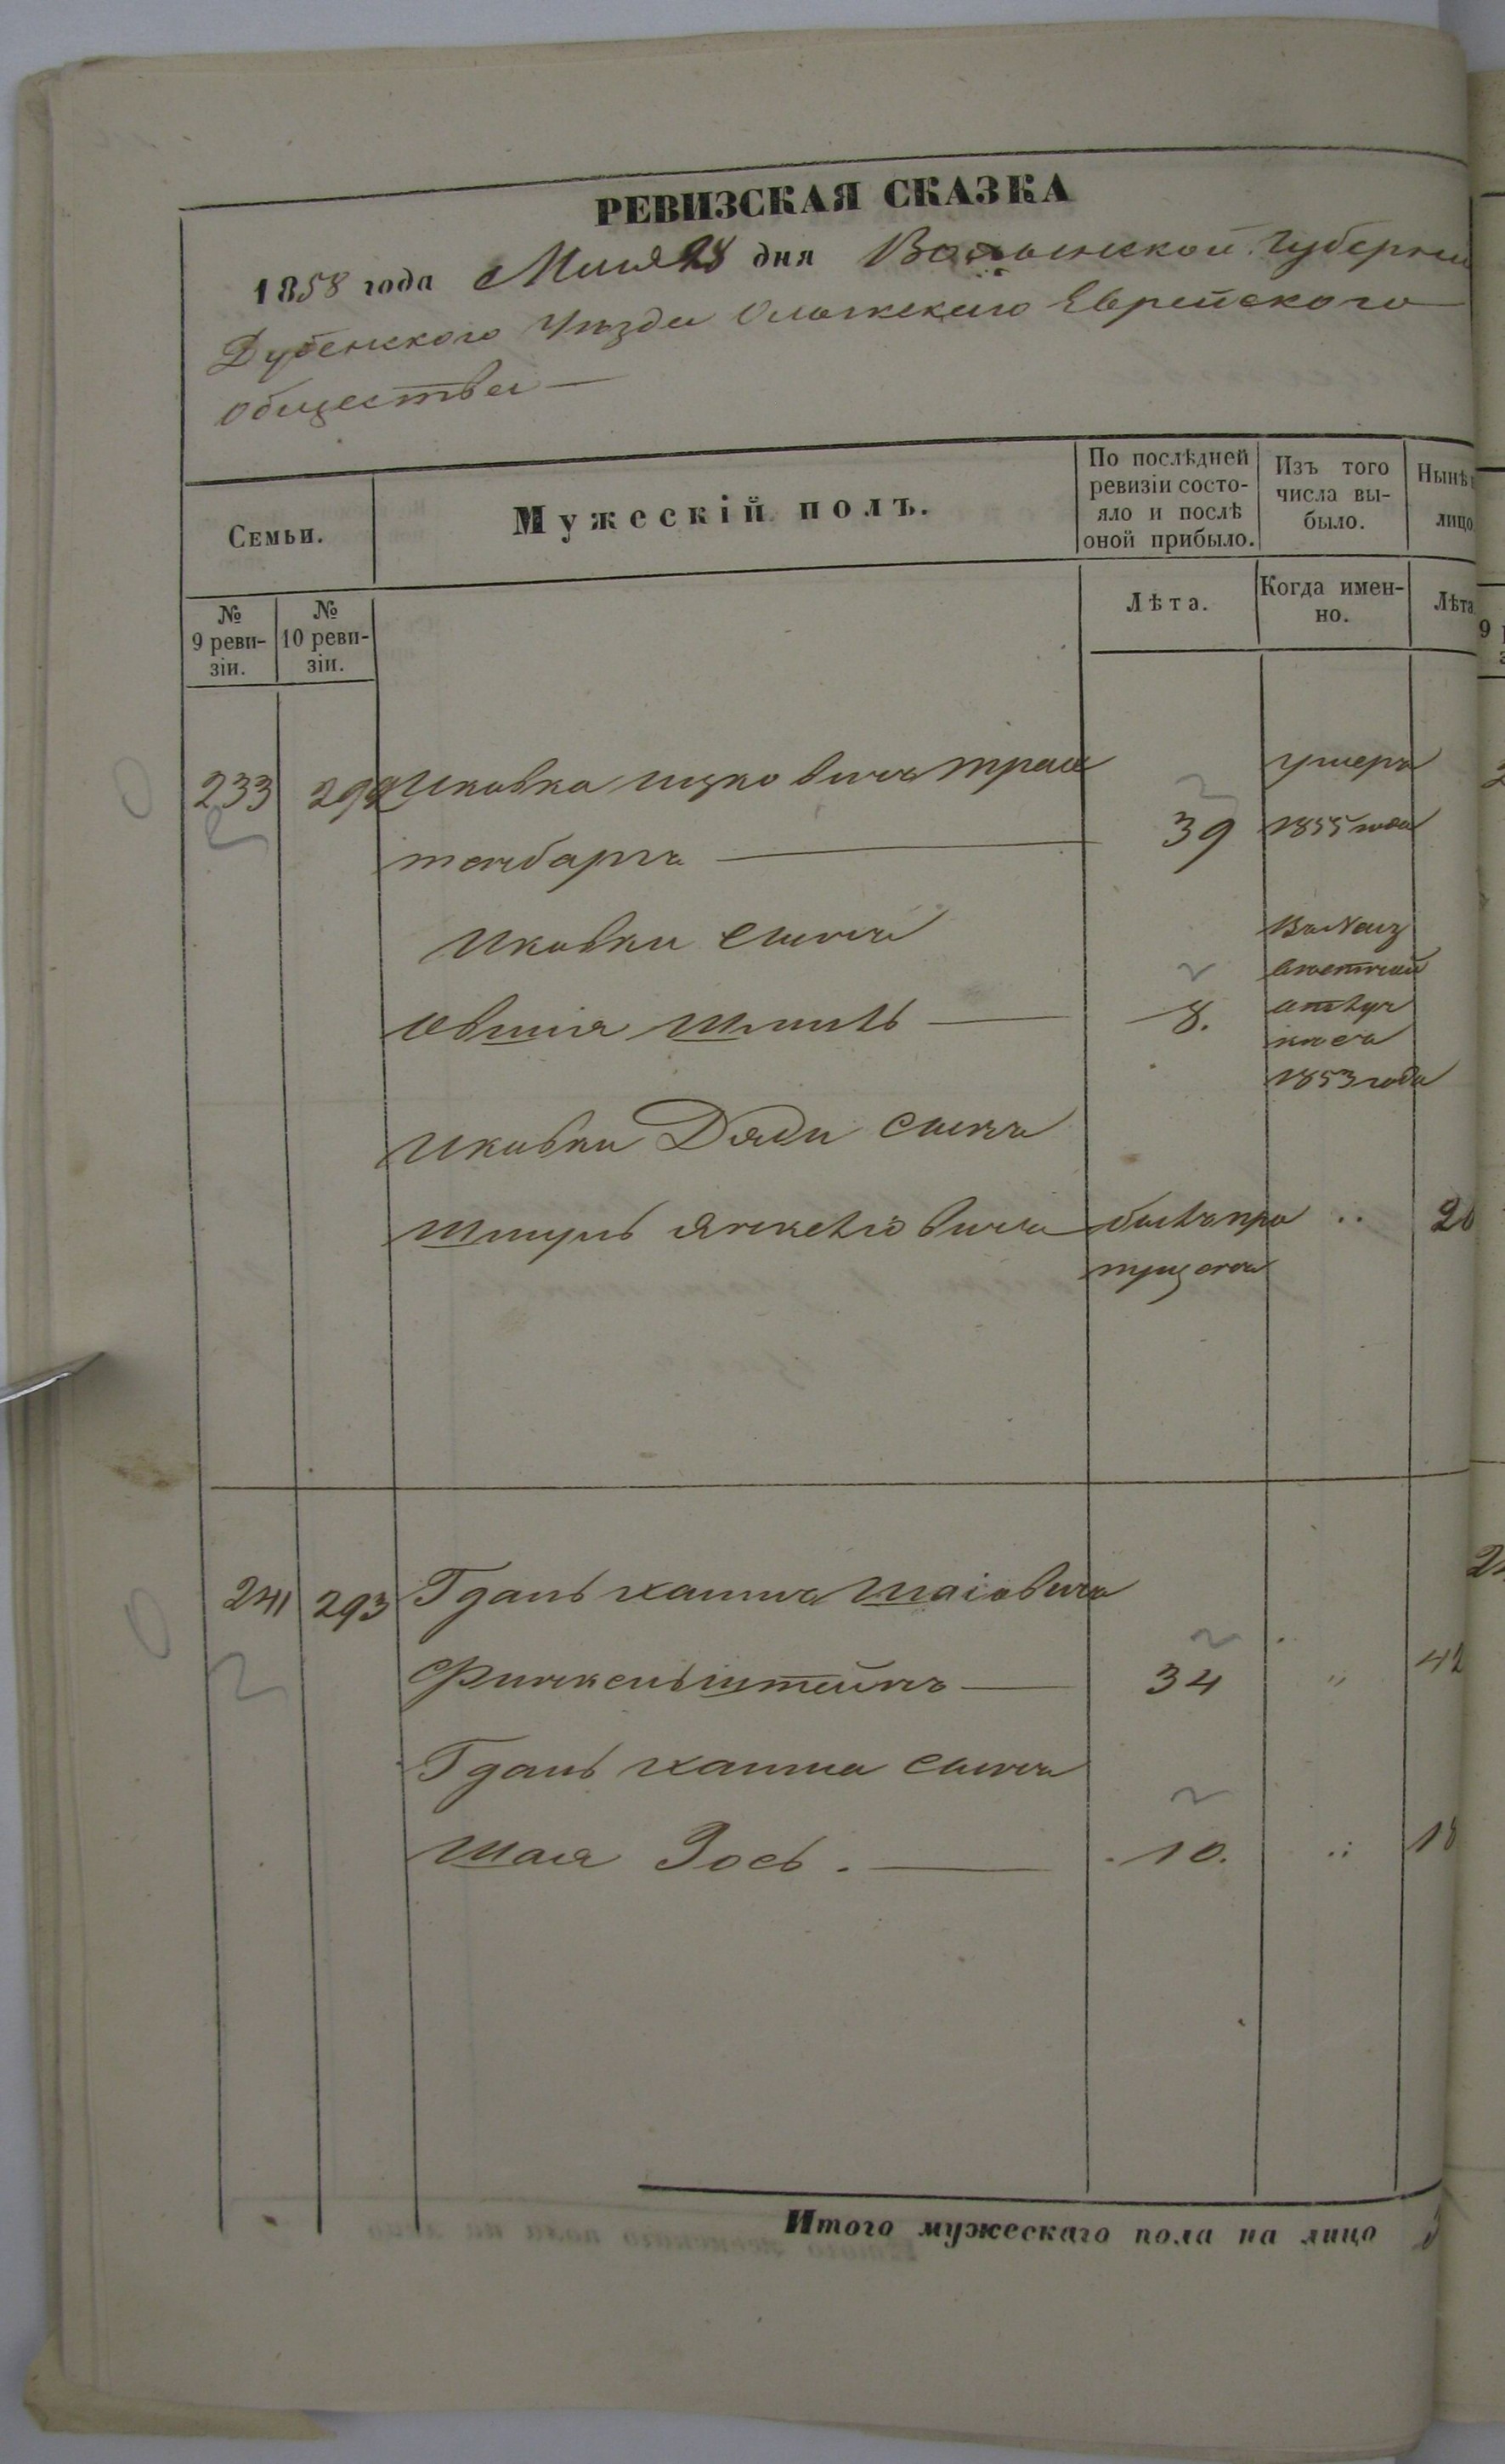 РЕВИЗСКАЯ СКАЗКА
1858 года Мая 28 дня Волынской Губерніи
Дубенского Уѣзда Олыкского Еврейского
общества —
Семьи.
Мужескій полъ.
По послѣдней
ревизіи состо-
яло и послѣ
оной прибыло.
Изъ того
числа вы-
было.
Нынѣ
лицо
№
9 реви-
зіи.
№
10 реви-
зіи.
Лѣта.
Когда имен-
но.
Лѣта
233 292 Ицковичъ
39
умеръ
1855 года
тенбаргъ —
сынъ
Овшія Шмиль — 8.
1853 года
Дяди сынъ
Янкелiовичъ былъ про
пущенъ
20
241 293 Гдаль хаимъ Шаіовичъ
Финкельштейнъ — 34 " 42
Гдаль хаима сынъ
Шая Зось. — 10. 18
Итого мужескаго пола на лицо